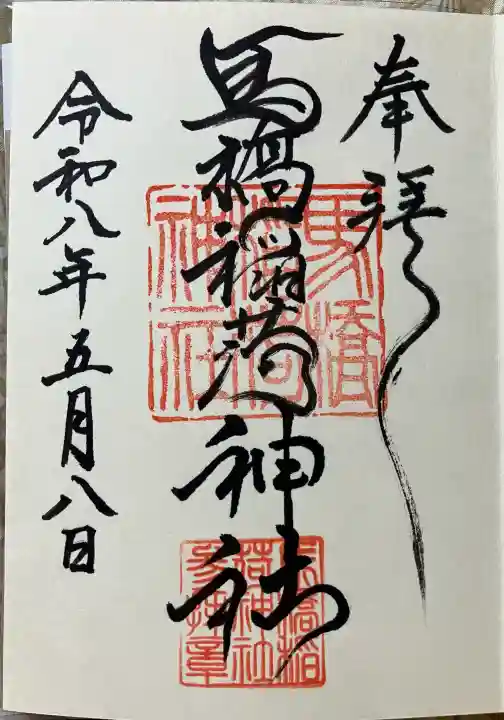 奉拝
馬橋稲荷神社
令和八年五月八日
馬橋
稲荷
神社
馬橋稲
荷神社
参拝章